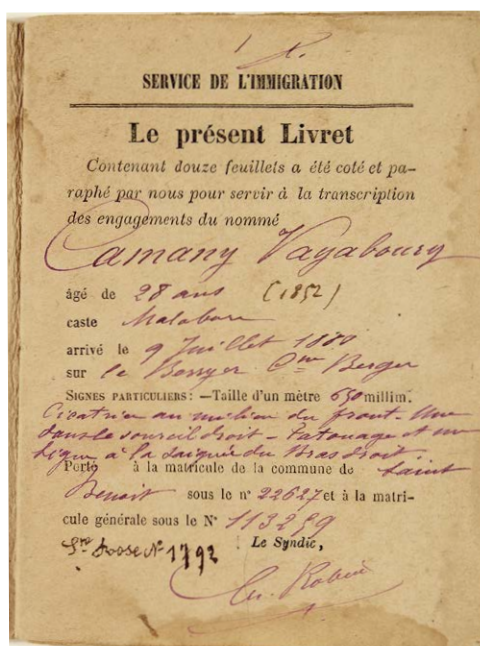 SERVICE DE L'IMMIGRATION
Le présent Livret
Contenant douze feuillets a été coté et pa-
raphé par nous pour servir à la transcription
des engagements du nommé
Camany Vayaboury
âgé de 28 ans (1852)
caste Malabare
arrivé le 9 Juillet 1880
sur le Bossyer Cne Berger
SIGNES PARTICULIERS: —Taille d'un mètre 650 millim.
Cicatrice au milieu du front. Une
dans le sourcil droit - Tatouage et un
signe à la saignée du Bras droit.
Porté à la matricule de la commune de Saint
Benoit sous le n° 22627 et à la matri-
cule générale sous le N° 113259
Ste Roose N° 1792 Le Syndic,